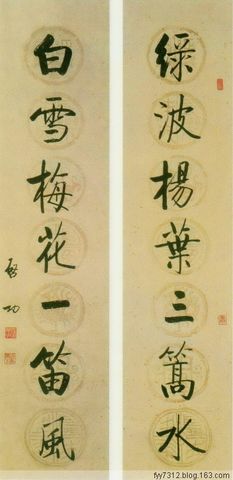 绿波楊葉三篙水
白雪梅花一笛風
啓功
fyy7312.blog.163.com